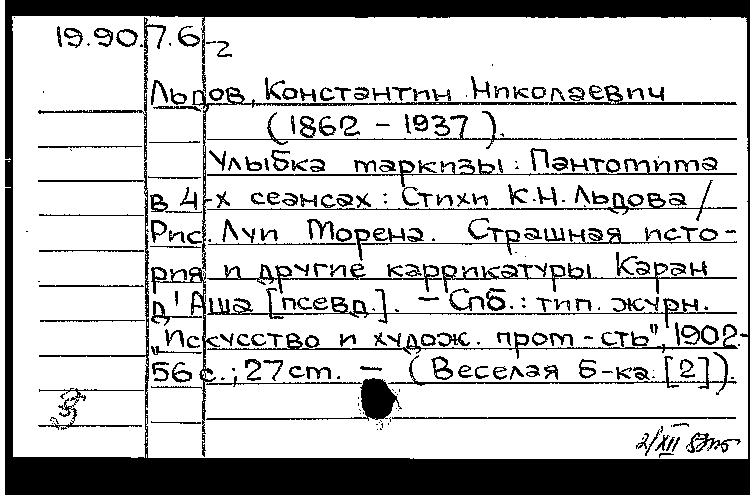 19.90.7.6-2
Льдов, Константин Николаевич
(1862 - 1937).
Улыбка маркизы: Пантомима
в 4-х сеансах: Стихи К.Н. Льдова /
Рис. Луи Морена. Страшная исто-
рия и другие каррикатуры Каран
д'Аша [псевд.]. - Спб.: тип. журн.
"Искусство и худож. пром-сть", 1902.-
56 с.; 27 cm. - (Веселая б-ка. [2]).
З
2/XII